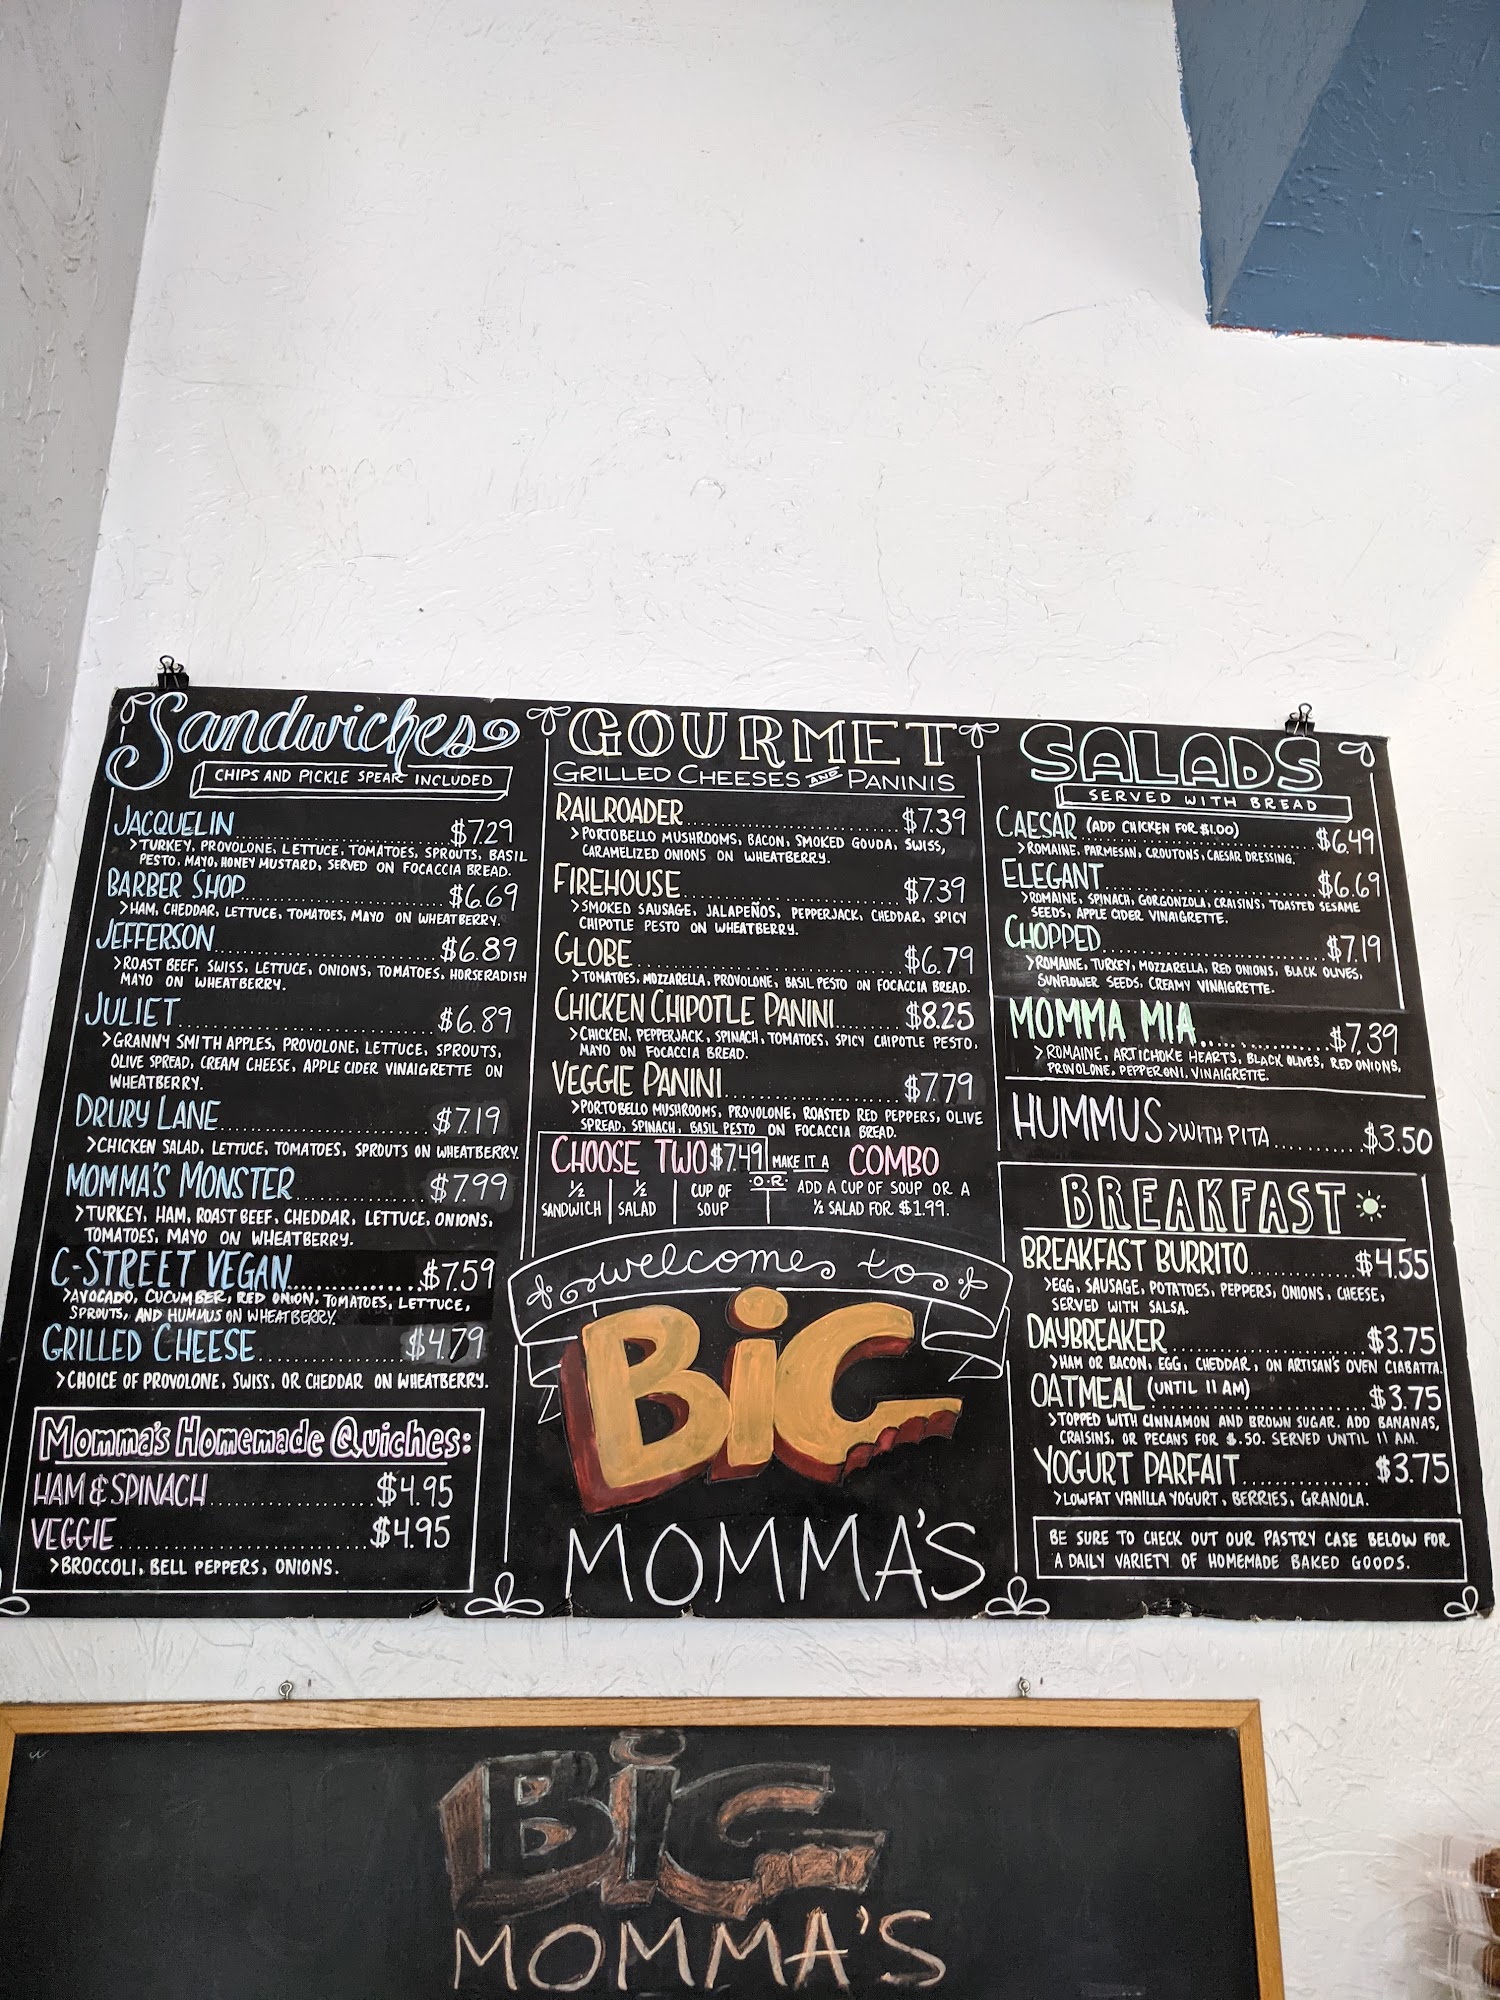 Sandwiches
CHIPS AND PICKLE SPEAR INCLUDED
JACQUELIN.......... $7.29
>TURKEY, PROVOLONE, LETTUCE, TOMATOES, SPROUTS, BASIL
PESTO, MAYO, HONEY MUSTARD, SERVED ON FOCACCIA BREAD.
BARBER SHOP.......... $6.69
>HAM, CHEDDAR, LETTUCE, TOMATOES, MAYO ON WHEATBERRY.
JEFFERSON.......... $6.89
>ROAST BEEF, SWISS, LETTUCE, ONIONS, TOMATOES, HORSERADISH
MAYO ON WHEATBERRY.
JULIET.......... $6.89
>GRANNY SMITH APPLES, PROVOLONE, LETTUCE, SPROUTS,
OLIVE SPREAD, CREAM CHEESE, APPLE CIDER VINAIGRETTE ON
WHEATBERRY.
DRURY LANE.......... $7.19
>CHICKEN SALAD, LETTUCE, TOMATOES, SPROUTS ON WHEATBERRY.
MOMMA'S MONSTER.......... $7.99
>TURKEY, HAM, ROAST BEEF, CHEDDAR, LETTUCE, ONIONS,
TOMATOES, MAYO ON WHEATBERRY.
C-STREET VEGAN.......... $7.59
>AVOCADO, CUCUMBER, RED ONION, TOMATOES, LETTUCE,
SPROUTS, AND HUMMUS ON WHEATBERRY.
GRILLED CHEESE.......... $4.79
>CHOICE OF PROVOLONE, SWISS, OR CHEDDAR ON WHEATBERRY.
Momma's Homemade Quiches:
HAM & SPINACH.......... $4.95
VEGGIE.......... $4.95
>BROCCOLI, BELL PEPPERS, ONIONS.
GOURMET
GRILLED CHEESES AND PANINIS
RAILROADER.......... $7.39
>PORTOBELLO MUSHROOMS, BACON, SMOKED GOUDA, SWISS,
CARAMELIZED ONIONS ON WHEATBERRY.
FIREHOUSE.......... $7.39
>SMOKED SAUSAGE, JALAPEÑOS, PEPPERJACK, CHEDDAR, SPICY
CHIPOTLE PESTO ON WHEATBERRY.
GLOBE.......... $6.79
>TOMATOES, MOZZARELLA, PROVOLONE, BASIL PESTO ON FOCACCIA BREAD.
CHICKEN CHIPOTLE PANINI.......... $8.25
>CHICKEN, PEPPERJACK, SPINACH, TOMATOES, SPICY CHIPOTLE PESTO,
MAYO ON FOCACCIA BREAD.
VEGGIE PANINI.......... $7.79
>PORTOBELLO MUSHROOMS, PROVOLONE, ROASTED RED PEPPERS, OLIVE
SPREAD, SPINACH, BASIL PESTO ON FOCACCIA BREAD.
CHOOSE TWO $7.49
½ SANDWICH | ½ SALAD | CUP OF SOUP
·O·R·
MAKE IT A COMBO
ADD A CUP OF SOUP OR A
½ SALAD FOR $1.99.
welcome to
BiG
MOMMA'S
SALADS
SERVED WITH BREAD
CAESAR (ADD CHICKEN FOR $1.00) $6.49
>ROMAINE, PARMESAN, CROUTONS, CAESAR DRESSING.
ELEGANT.......... $6.69
>ROMAINE, SPINACH, GORGONZOLA, CRAISINS, TOASTED SESAME
SEEDS, APPLE CIDER VINAIGRETTE.
CHOPPED.......... $7.19
>ROMAINE, TURKEY, MOZZARELLA, RED ONIONS, BLACK OLIVES,
SUNFLOWER SEEDS, CREAMY VINAIGRETTE.
MOMMA MIA.......... $7.39
>ROMAINE, ARTICHOKE HEARTS, BLACK OLIVES, RED ONIONS,
PROVOLONE, PEPPERONI, VINAIGRETTE.
HUMMUS >WITH PITA.......... $3.50
BREAKFAST
BREAKFAST BURRITO.......... $4.55
>EGG, SAUSAGE, POTATOES, PEPPERS, ONIONS, CHEESE,
SERVED WITH SALSA.
DAYBREAKER.......... $3.75
>HAM OR BACON, EGG, CHEDDAR, ON ARTISAN'S OVEN CIABATTA.
OATMEAL (UNTIL 11 AM) $3.75
>TOPPED WITH CINNAMON AND BROWN SUGAR. ADD BANANAS,
CRAISINS, OR PECANS FOR $.50. SERVED UNTIL 11 AM.
YOGURT PARFAIT.......... $3.75
>LOWFAT VANILLA YOGURT, BERRIES, GRANOLA.
BE SURE TO CHECK OUT OUR PASTRY CASE BELOW FOR
A DAILY VARIETY OF HOMEMADE BAKED GOODS.
BiG
MOMMA'S